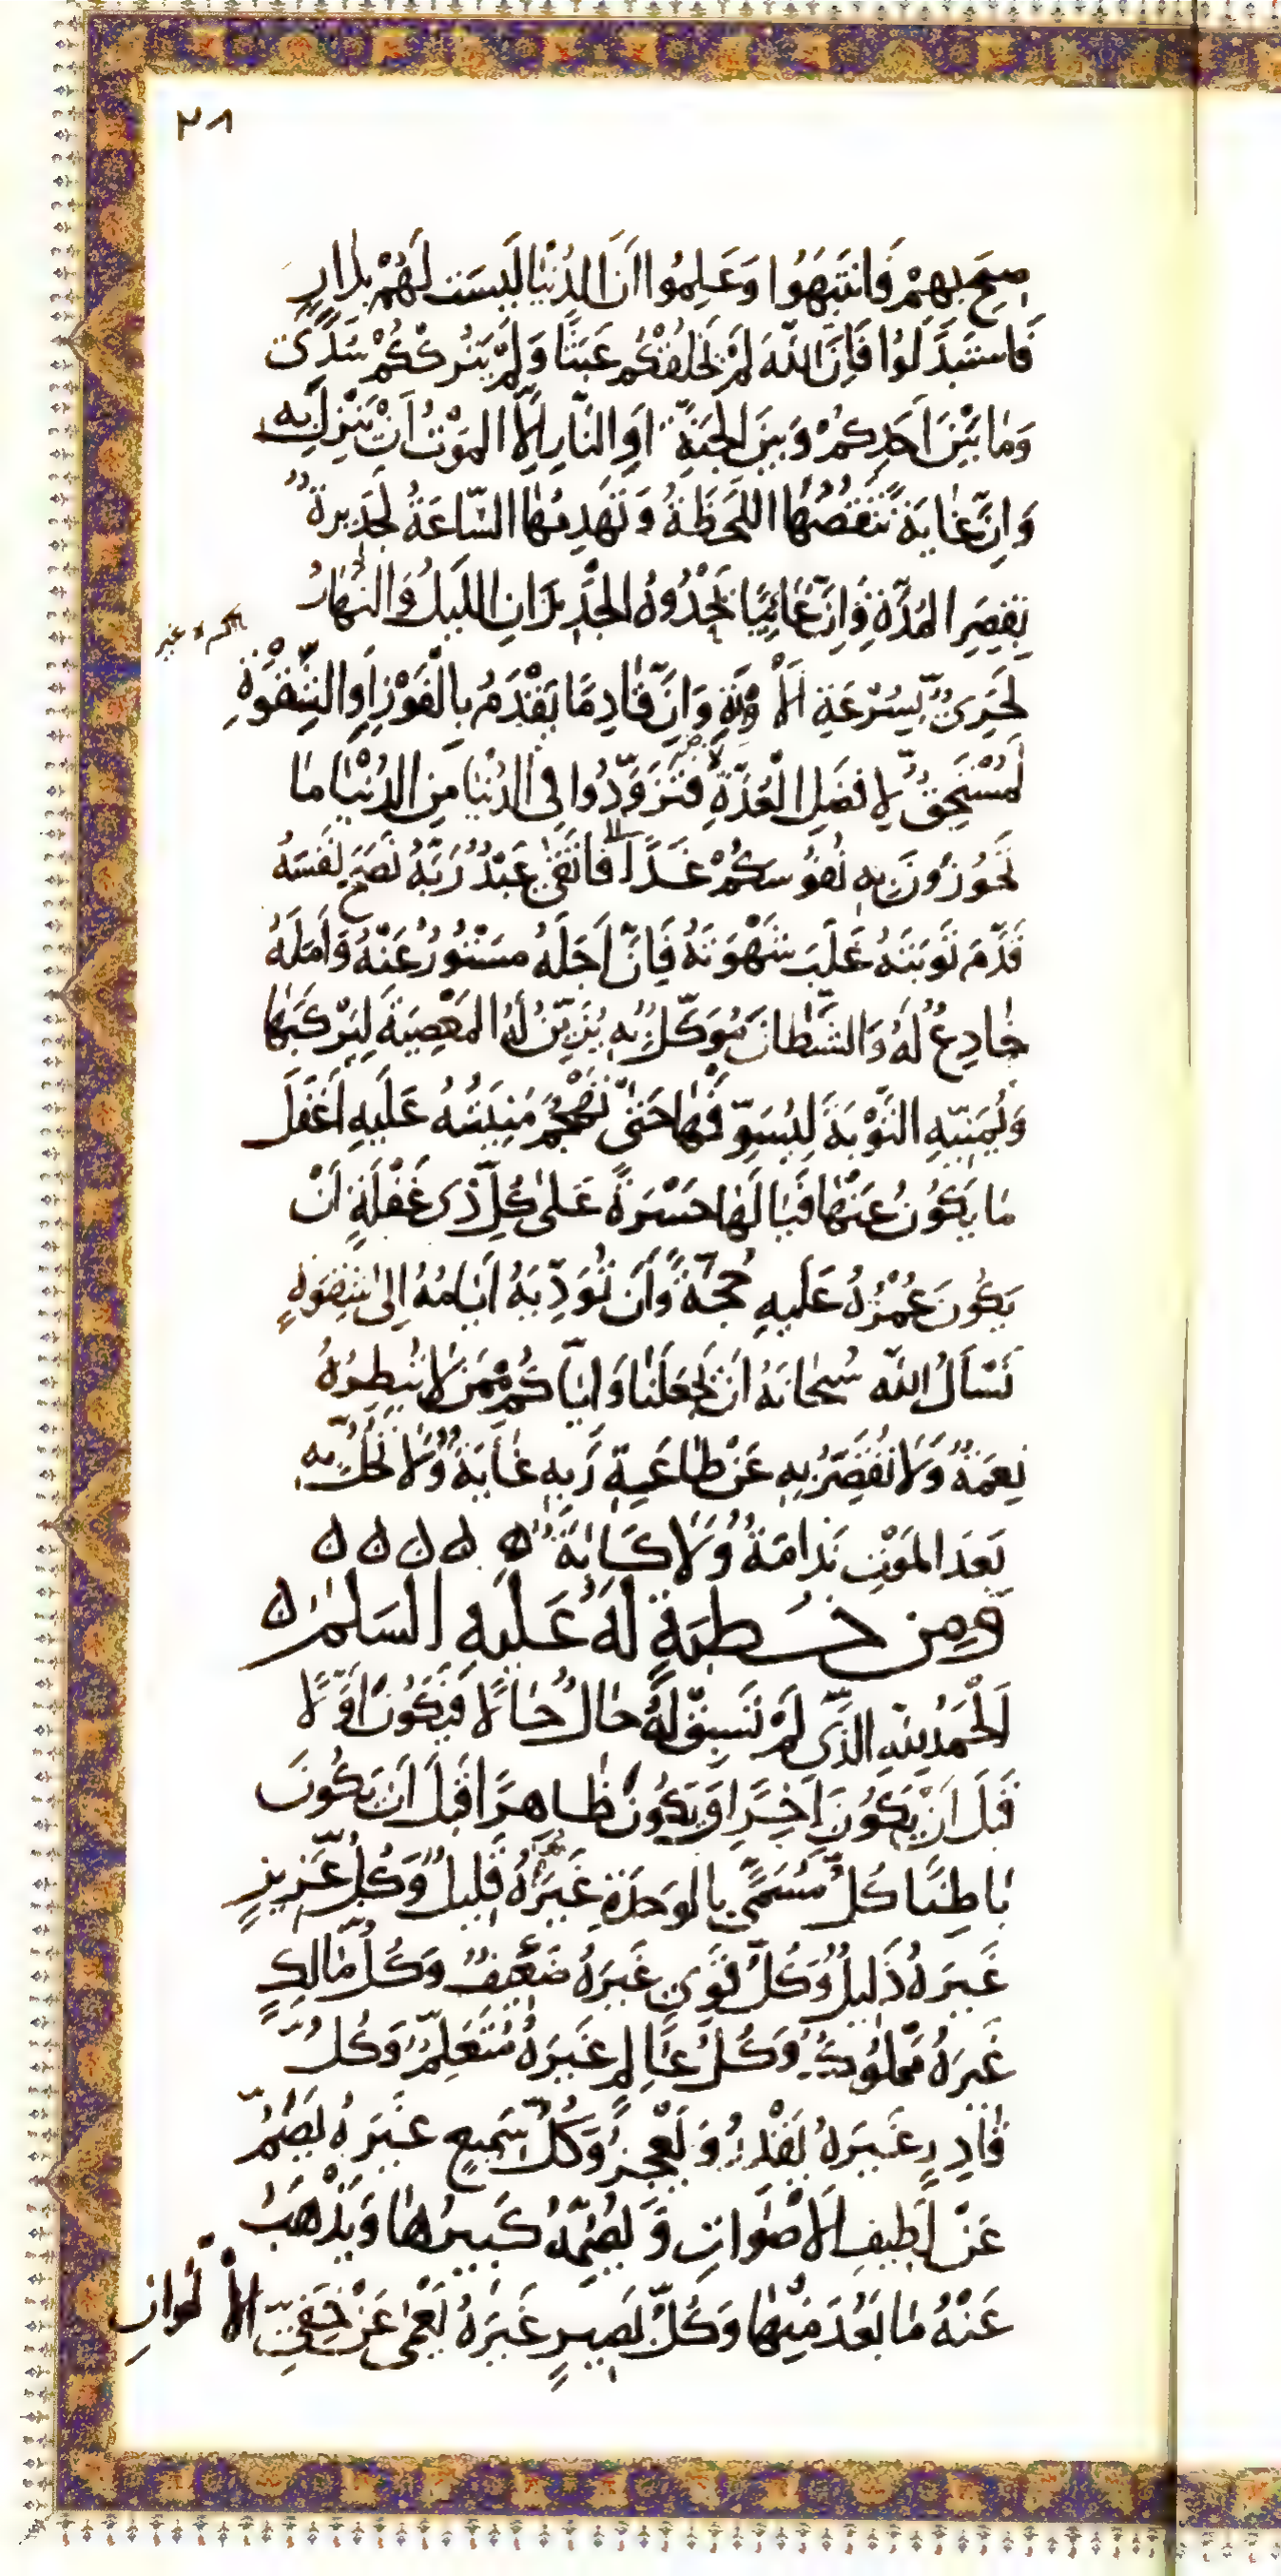 ٢٨
صِيحَ بِهِمْ فَانْتَبَهُوا وَعَلِمُوا اَنَّ الدُّنْيَا لَيْسَت لَهُمْ بِدَارٍ
فَاسْتَبْدَلُوا فَاِنَّ اللّٰهَ لَمْ يَخْلُقْكُمْ عَبَثًا وَلَمْ يَتْرُكْكُمْ سُدًى
وَمَا بَيْنَ اَحَدِكُمْ وَبَيْنَ الْجَنَّةِ اَوِ النَّارِ اِلَّا الْمَوْتُ اَنْ يَنْزِلَ بِهِ
وَاِنَّ غَايَةً تَنْقُصُهَا اللَّحْظَةُ وَتَهْدِمُهَا السَّاعَةُ لَجَدِيرَةٌ
بِقِصَرِ الْمُدَّةِ وَاِنَّ غَائِبًا يَحْدُوهُ الْجَدِيدَانِ اللَّيْلُ وَالنَّهَارُ
لَحَرِىٌّ بِسُرْعَةِ الْاَوْبَةِ وَاِنَّ قَادِمًا يَقْدَمُ بِالْفَوْزِ اَوِ الشِّقْوَةِ
لَمُسْتَحِقٌّ لِاَفْضَلِ الْعُدَّةِ فَتَزَوَّدُوا فِى الدُّنْيَا مِنَ الدُّنْيَا مَا
تَحُوزُونَ بِهِ نُفُوسَكُمْ غَدًا فَاتَّقٰى عَبْدٌ رَبَّهُ نَصَحَ نَفْسَهُ
قَدَّمَ تَوْبَتَهُ غَلَبَ شَهْوَتَهُ فَاِنَّ اَجَلَهُ مَسْتُورٌ عَنْهُ وَاَمَلَهُ
خَادِعٌ لَهُ وَالشَّيْطَانَ مُوَكَّلٌ بِهِ يُزَيِّنُ لَهُ الْمَعْصِيَةَ لِيَرْكَبَهَا
وَيُمَنِّيهِ التَّوْبَةَ لِيُسَوِّفَهَا حَتّٰى تَهْجُمَ مَنِيَّتُهُ عَلَيْهِ اَغْفَلَ
مَا يَكُونُ عَنْهَا فَيَا لَهَا حَسْرَةً عَلٰى كُلِّ ذِى غَفْلَةٍ اَنْ
يَكُونَ عُمْرُهُ عَلَيْهِ حُجَّةً وَاَنْ تُؤَدِّيَهُ اَيَّامُهُ اِلٰى شِقْوَةٍ
نَسْاَلُ اللّٰهَ سُبْحَانَهُ اَنْ يَجْعَلَنَا وَاِيَّاكُمْ مِمَّنْ لَا تُبْطِرُهُ
نِعْمَةٌ وَلَا تُقَصِّرُ بِهِ عَنْ طَاعَةِ رَبِّهِ غَايَةٌ وَلَا تَحُلُّ بِهِ
بَعْدَ الْمَوْتِ نَدَامَةٌ وَلَا كَابَةٌ
وَمِن خُطْبَةٍ لَهُ عَلَيْهِ السَّلٰمُ
اَلْحَمْدُ لِلّٰهِ الَّذِى لَمْ تَسْبِقْ لَهُ حَالٌ حَالًا فَيَكُونَ اَوَّلًا
قَبْلَ اَنْ يَكُونَ اٰخِرًا وَيَكُونَ ظَاهِرًا قَبْلَ اَنْ يَكُونَ
بَاطِنًا كُلُّ مُسَمًّى بِالْوَحْدَةِ غَيْرُهُ قَلِيلٌ وَكُلُّ عَزِيزٍ
غَيْرُهُ ذَلِيلٌ وَكُلُّ قَوِىٍّ غَيْرُهُ ضَعِيفٌ وَكُلُّ مَالِكٍ
غَيْرُهُ مَمْلُوكٌ وَكُلُّ عَالِمٍ غَيْرُهُ مُتَعَلِّمٌ وَكُلُّ
قَادِرٍ غَيْرُهُ يَقْدِرُ وَيَعْجِزُ وَكُلُّ سَمِيعٍ غَيْرُهُ يَصَمُّ
عَنْ لَطِيفِ الْاَصْوَاتِ وَيُصِمُّهُ كَبِيرُهَا وَيَذْهَبُ
عَنْهُ مَا بَعُدَ مِنْهَا وَكُلُّ بَصِيرٍ غَيْرُهُ يَعْمٰى عَنْ خَفِىِّ الْاَلْوَانِ